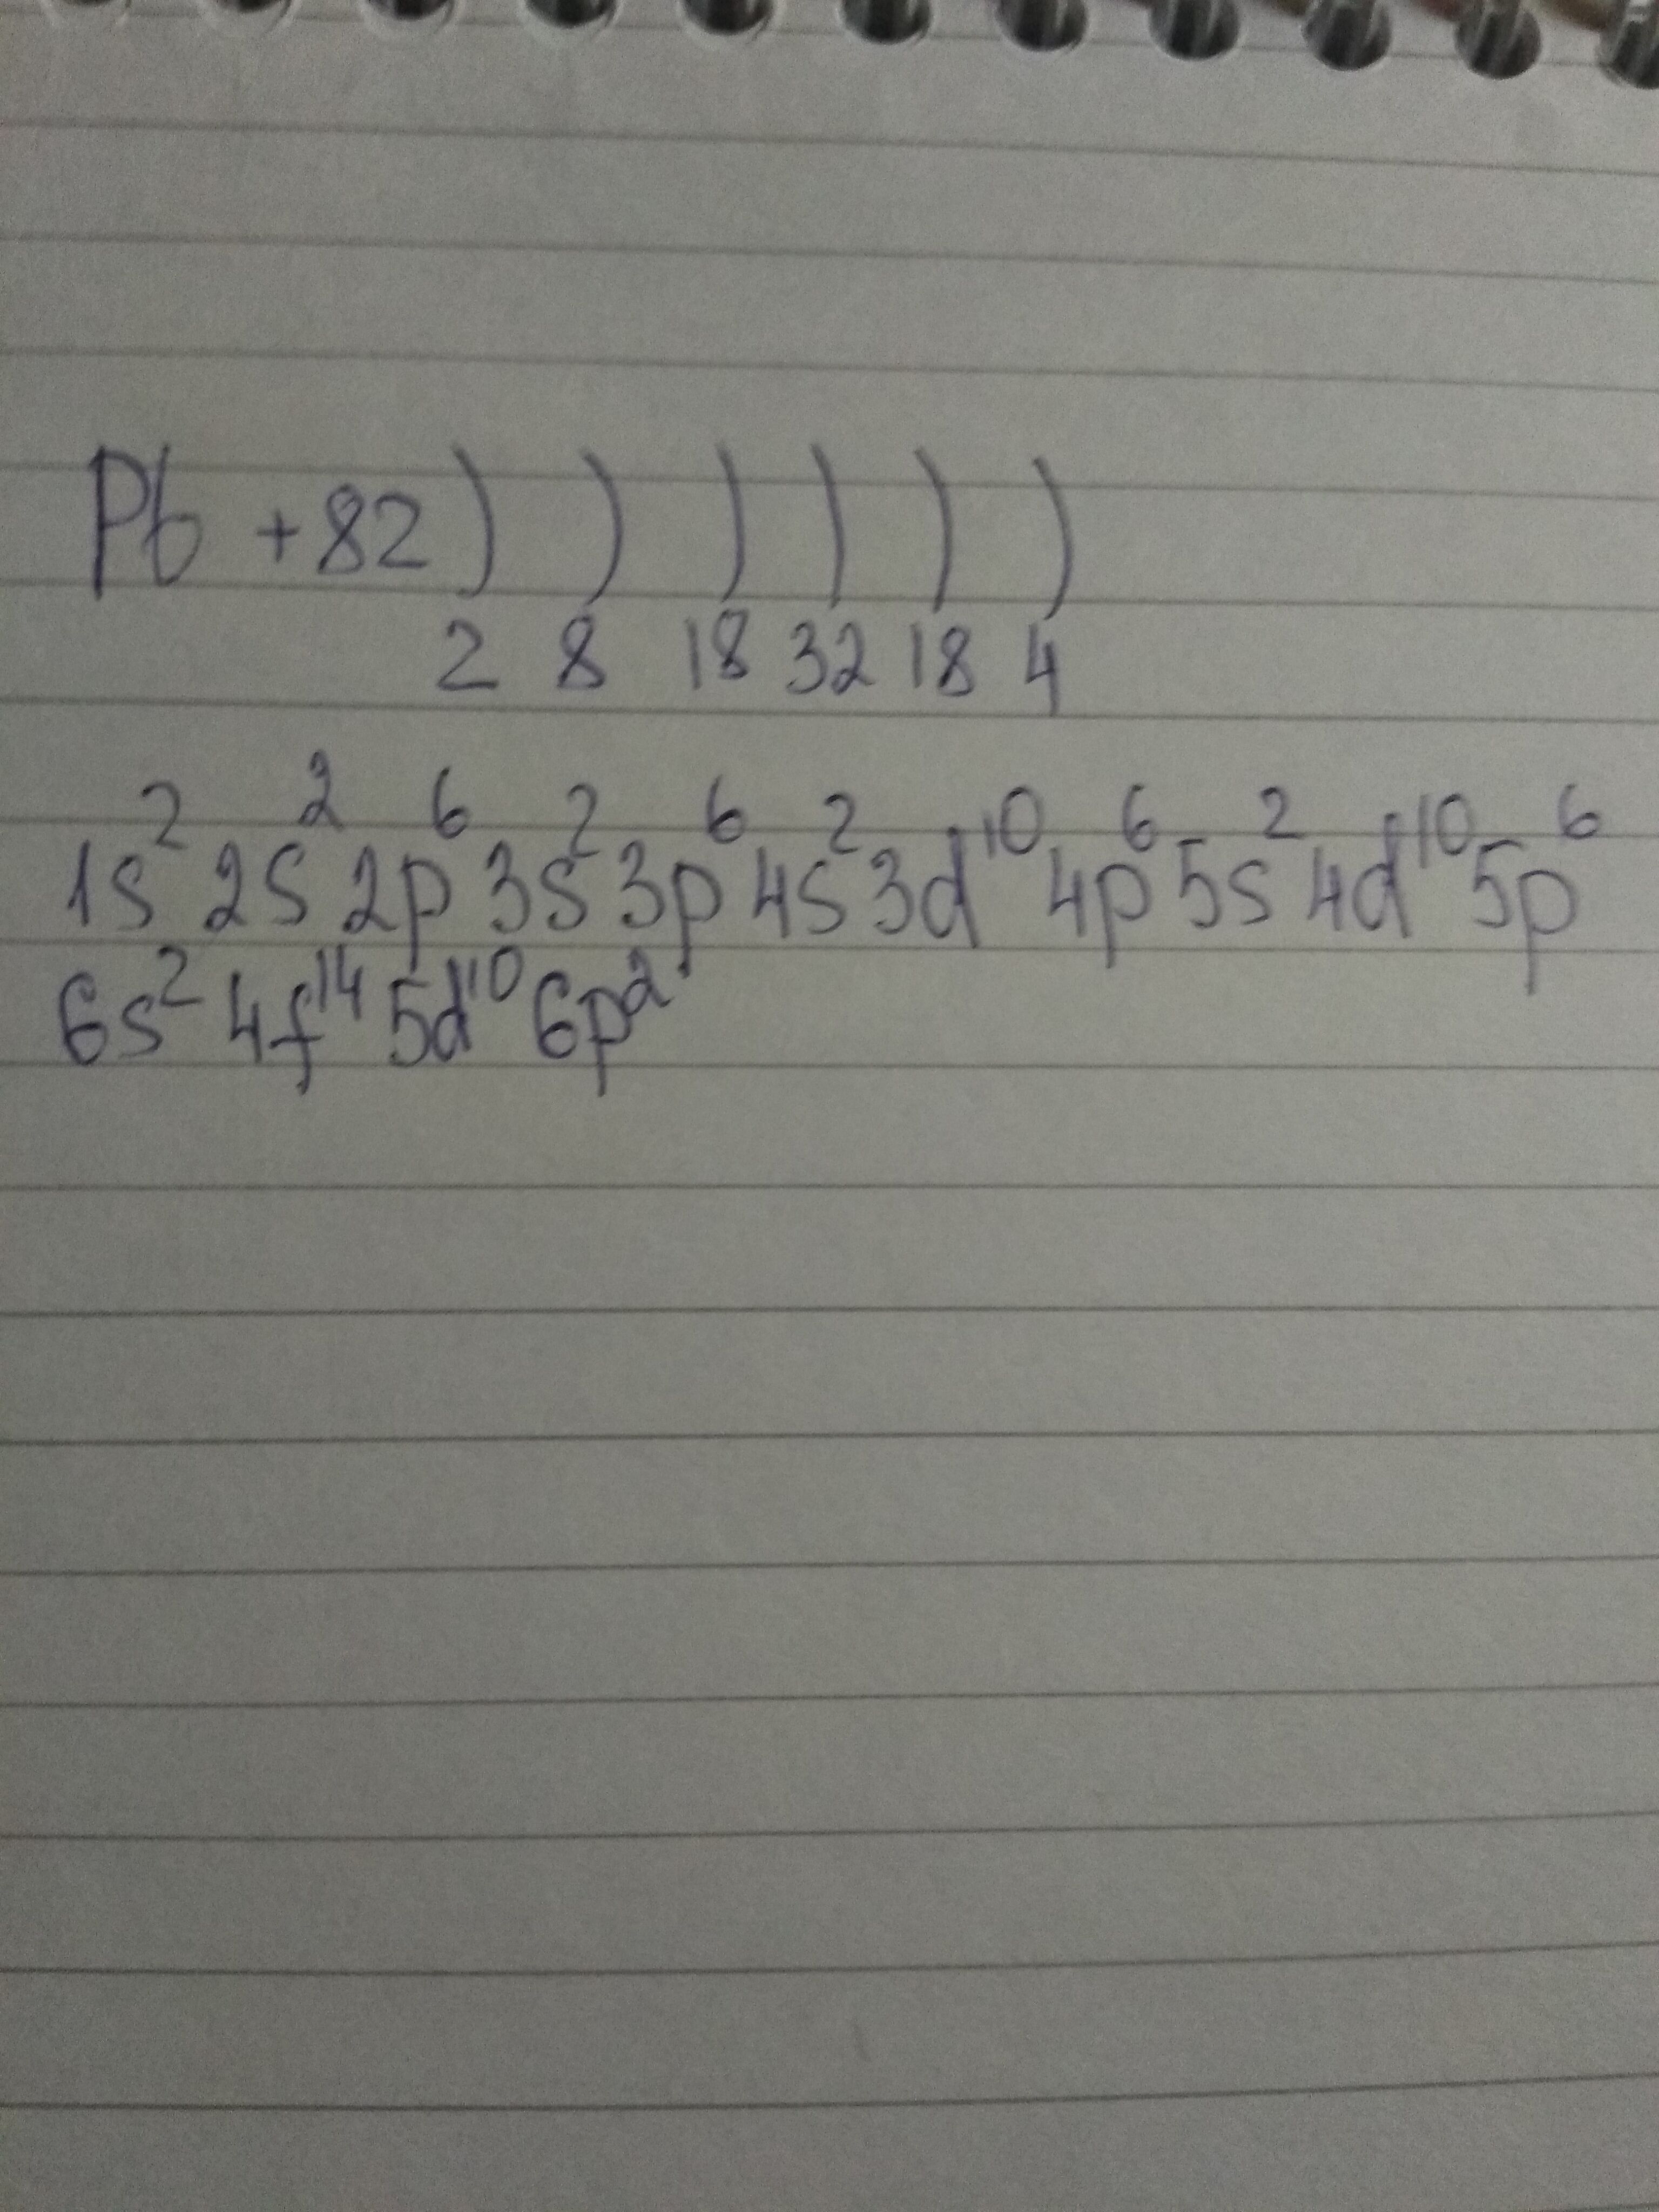 Pb +82 ) ) ) ) ) )
2 8 18 32 18 4
1s² 2s² 2p⁶ 3s² 3p⁶ 4s² 3d¹⁰ 4p⁶ 5s² 4d¹⁰ 5p⁶
6s² 4f¹⁴ 5d¹⁰ 6p²